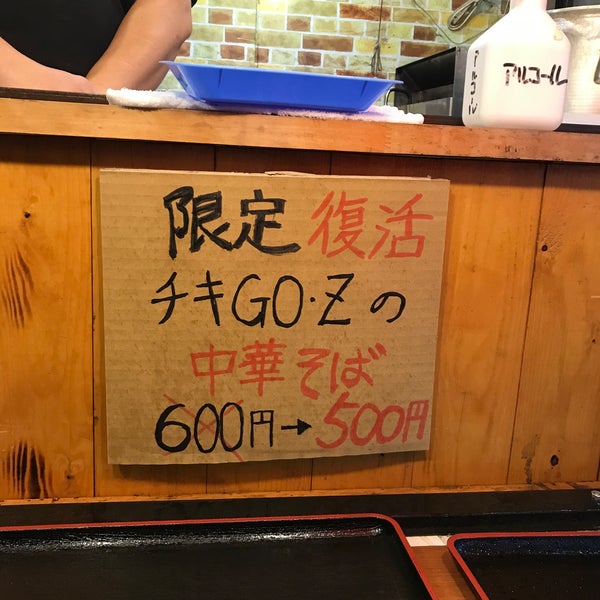 アルコール
アルコール
限定 復活
チキGO・Zの
中華そば
600円→500円